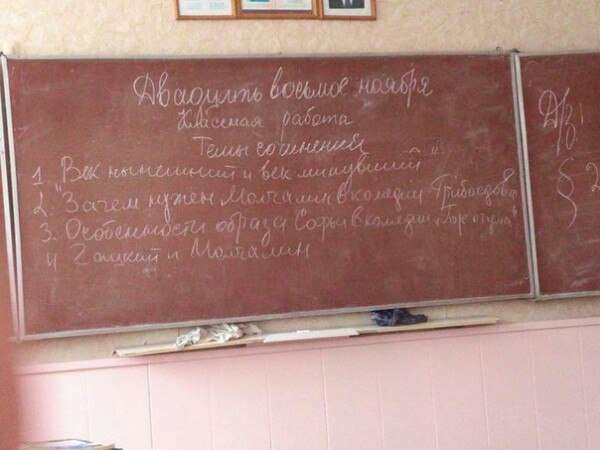 Двадцать восьмое ноября
Классная работа
Темы сочинений
1. "Век нынешний и век минувший"
2. Зачем нужен Молчалин в комедии Грибоедова
3. Особенности образа Софьи в комедии „Горе от ума"
4 Чацкий и Молчалин
§ 2